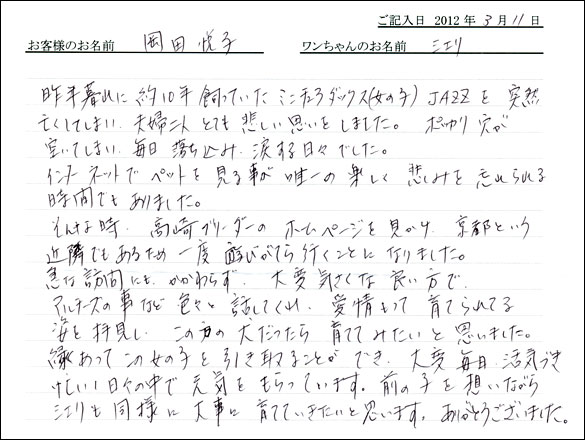 ご記入日 2012 年 3 月 11 日
お客様のお名前 岡田 悦子 ワンちゃんのお名前 シエリ
昨年暮れに 約10年 飼っていた ミニチュアダックス(女の子) JAZZ を 突然
亡くしてしまい、夫婦二人 とても 悲しい思いを しました。 ポッカリ 穴が
空いてしまい 毎日 落ち込み、涙する 日々 でした。
インターネットで ペットを 見る事が 唯一の 楽しく 悲しみを 忘れられる
時間でも ありました。
そんな時、高崎ブリーダーの ホームページを 見かけ、京都という
近隣でも あるため 一度 遊びがてら 行くことに なりました。
急な 訪問にも かかわらず、大変 気さくな 良い方で、
マルチーズの 事など 色々と 話してくれ、愛情もって 育てられてる
姿を 拝見し、この方の 犬だったら 育てて みたいと 思いました。
縁あって この女の子を 引き取ることが でき、大変 毎日 活気づき
忙しい 日々の中で 元気を もらっています。前の子を 想いながら
シエリも 同様に 大事に 育てていきたいと思います。ありがとうございました。